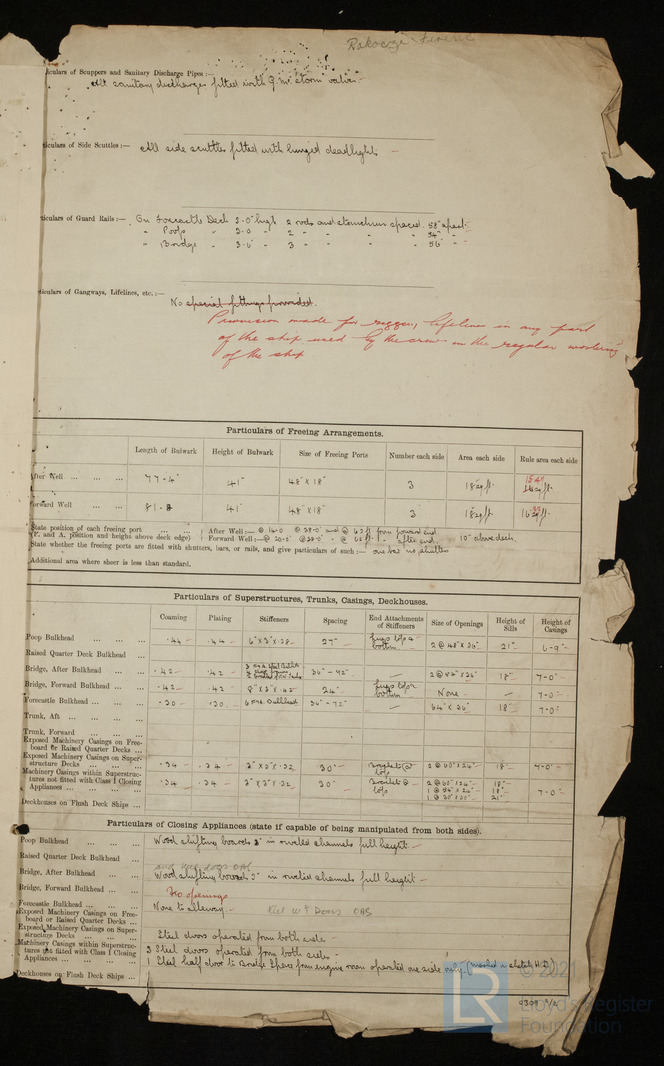 Rakoczi Ferenc
iculars of Scuppers and Sanitary Discharge Pipes :—
All sanitary discharges fitted with G.M. storm valves —
iculars of Side Scuttles :—
All side scuttles fitted with hinged deadlights —
ticulars of Guard Rails :—
On Forecastle Deck 3.0" high 2 rods and stanchions spaced 58" apart
" Poop " 3.0 " 2 " " " 54" "
" Bridge " 3-6 " 3 " " " 56 " "
ticulars of Gangways, Lifelines, etc. :—
No special fittings provided.
Provision made for rigging lifelines in any part
of the ship used by the crew in the regular working
of the ship
Particulars of Freeing Arrangements.
Length of Bulwark Height of Bulwark Size of Freeing Ports Number each side Area each side Rule area each side
After Well 77-4" 41" 48" x 18" 3 18 sq ft.
Forward Well 81. 41" 48" x 18" 3 18 sq ft.
State position of each freeing port After Well :— @ 14-0 @ 38-0 and @ 62 ft. from forward end
(F. and A. position and height above deck edge) Forward Well :— @ 20-0" @ 38-0" " @ 62 ft. " after end. 10" above deck.
State whether the freeing ports are fitted with shutters, bars, or rails, and give particulars of such :— one bar no shutter
Additional area where sheer is less than standard.
Particulars of Superstructures, Trunks, Casings, Deckhouses.
Coaming Plating Stiffeners Spacing End Attachments of Stiffeners Size of Openings Height of Sills Height of Casings
Poop Bulkhead .44 .44 6" x 3" x .38 27" Lugs top & bottom 2 @ 48" x 36" 21" 6-9"
Raised Quarter Deck Bulkhead
Bridge, After Bulkhead .42 .42 36" - 42" — 18" 7-0"
Bridge, Forward Bulkhead .42 .42 8" x 3" x .42 24" Lugs top & bottom None — 7-0"
Forecastle Bulkhead .30 .30 36" - 72" — 64" x 36" 18" 7-0"
Trunk, Aft
Trunk, Forward
Exposed Machinery Casings on Free-
board or Raised Quarter Decks
Exposed Machinery Casings on Super-
structure Decks .34 .34 3" x 3" x .32 30" Bracket @ top 2 @ 60" x 24" 18" 7-0"
Machinery Casings within Superstruc-
tures not fitted with Class I Closing
Appliances .34 .34 3" x 3" x .32 30" Bracket @ top 2 @ 60" x 24" 18" 7-0"
Deckhouses on Flush Deck Ships
Particulars of Closing Appliances (state if capable of being manipulated from both sides).
Poop Bulkhead Wood shifting boards 3" in riveted channels full height —
Raised Quarter Deck Bulkhead
Bridge, After Bulkhead Wood shifting boards 3" in riveted channels full height —
Bridge, Forward Bulkhead No openings
Forecastle Bulkhead None to alleway — Doors OAS
Exposed Machinery Casings on Free-
board or Raised Quarter Decks
Exposed Machinery Casings on Super-
structure Decks Steel doors operated from both sides —
Machinery Casings within Superstruc-
tures not fitted with Class I Closing
Appliances 3 Steel doors operated from both sides —
1 Steel half door to Bridge Space from engine room operated one side only (marked in sketch H.D)
Deckhouses on Flush Deck Ships
© 2021
Lloyd's Register
Foundation
LR